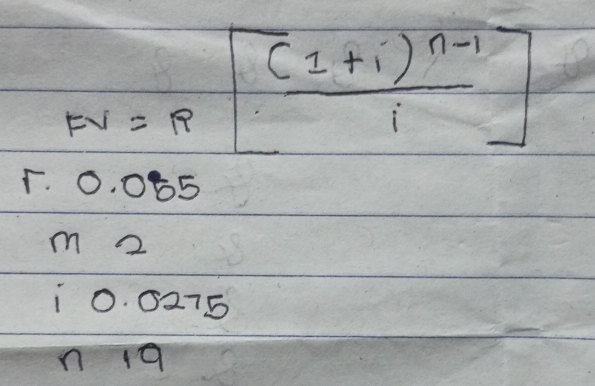 FV = R [ (1 + i)^n-1 / i ]
r. 0.055
m 2
i 0.0275
n 19